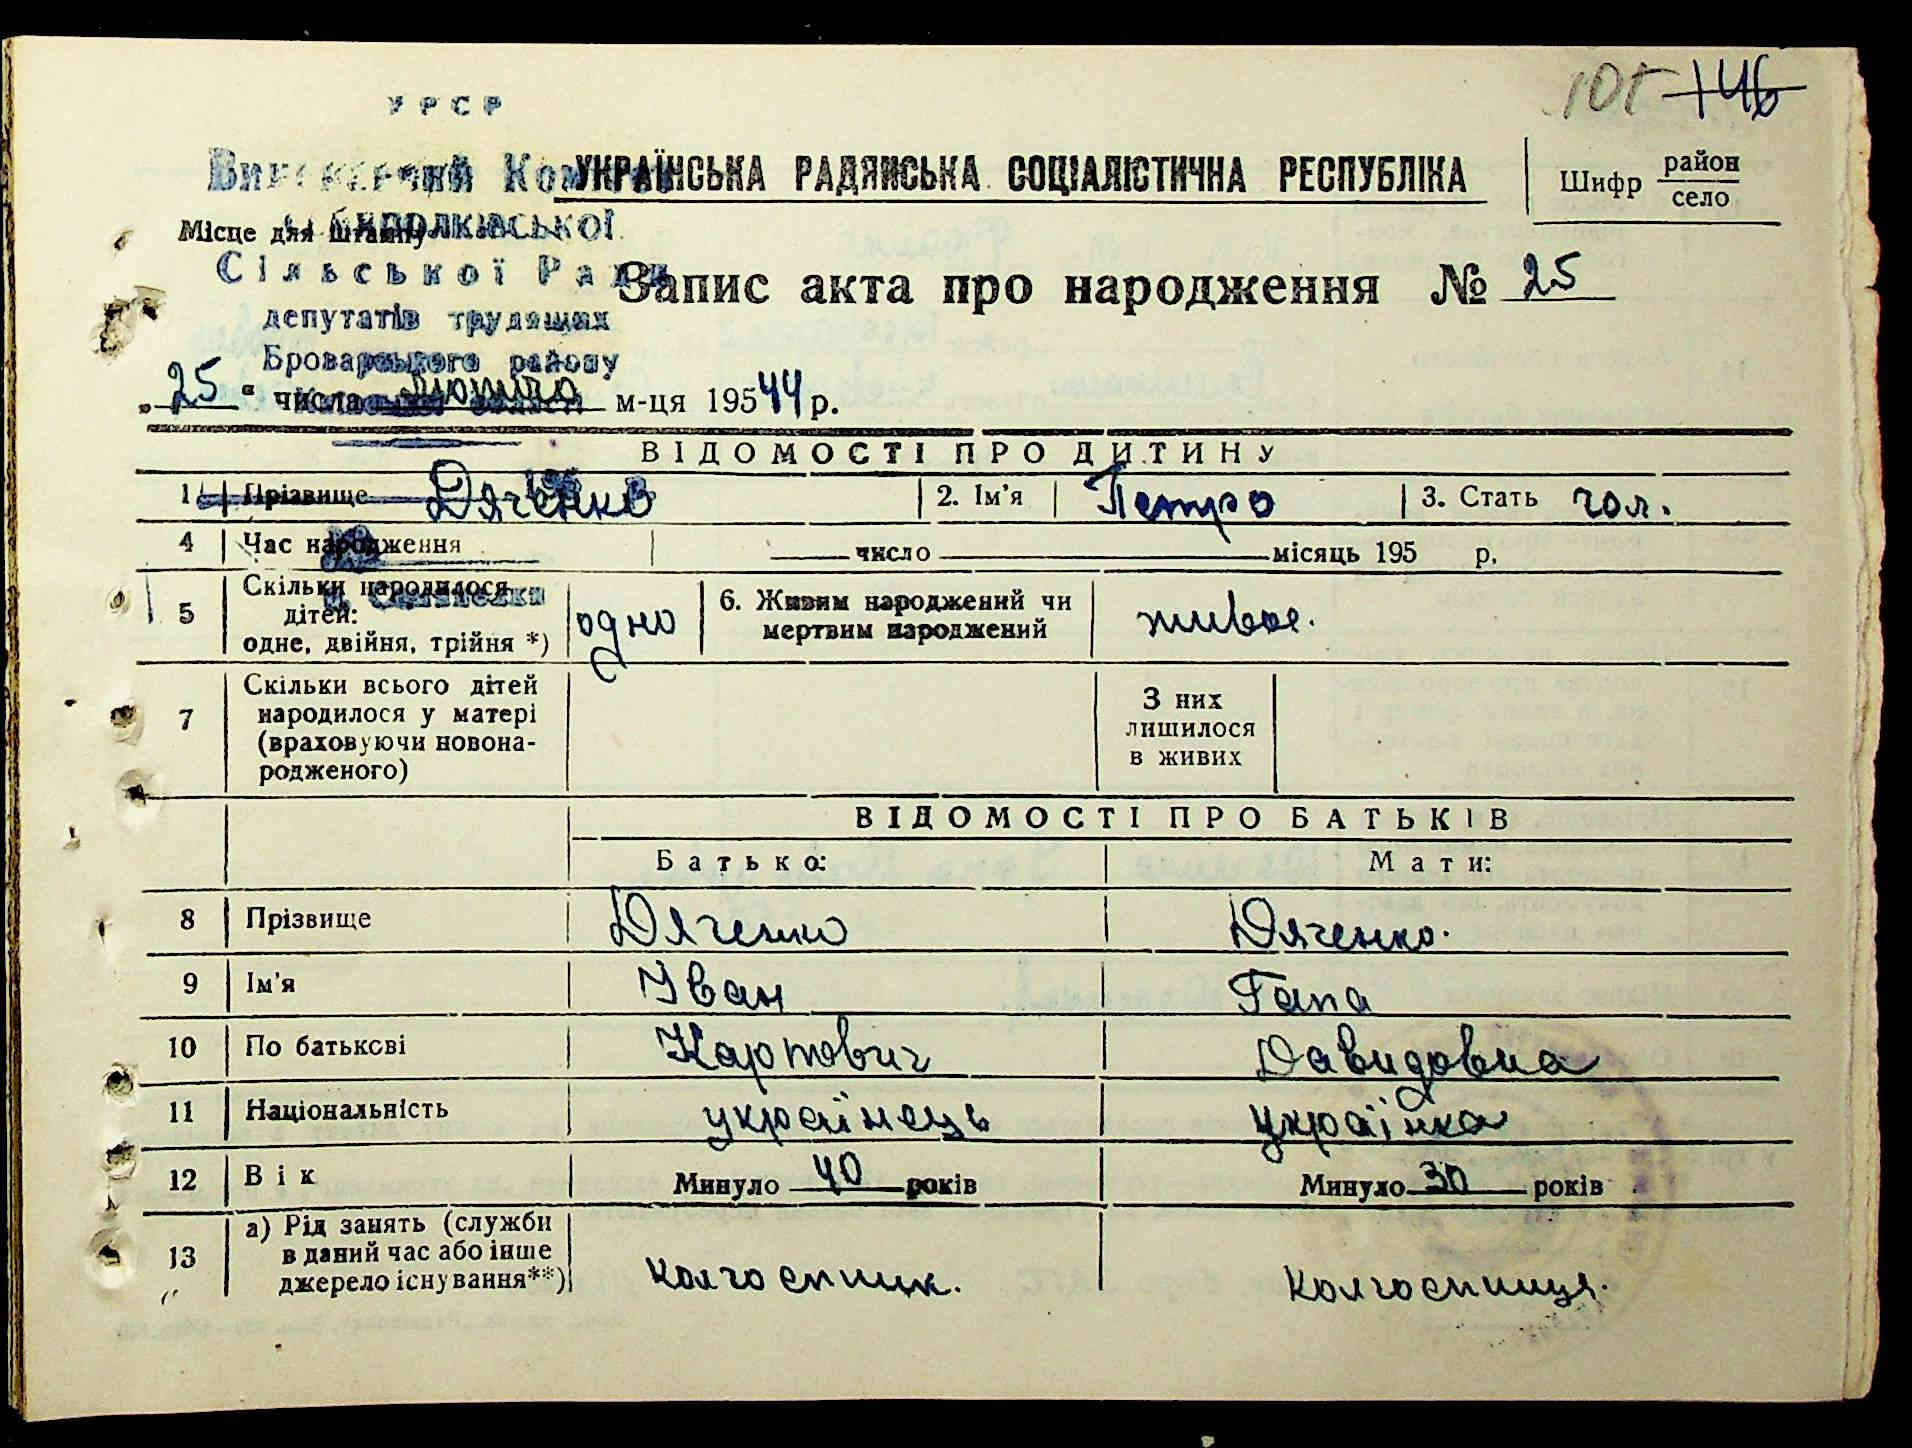 УРСР
146
Виконавчий Комітет
УКРАЇНСЬКА РАДЯНСЬКА СОЦІАЛІСТИЧНА РЕСПУБЛІКА
Шифр район село
Місце для штампу
Сільської Ради
Запис акта про народження № 25
депутатів трудящих
Броварського району
25 " числа лютого м-ця 195 44 р.
ВІДОМОСТІ ПРО ДИТИНУ
1 Прізвище Дяченко 2. Ім'я Петро 3. Стать чол.
4 Час народження число місяць 195 р.
5 Скільки народилося дітей: одне, двійня, трійня *) одно 6. Живим народжений чи мертвим народжений живое.
7 Скільки всього дітей народилося у матері (враховуючи новонародженого) З них лишилося в живих
ВІДОМОСТІ ПРО БАТЬКІВ
Батько: Мати:
8 Прізвище Дяченко Дяченко.
9 Ім'я Іван Гапа
10 По батькові Карпович Давидовна
11 Національність українець українка
12 Вік Минуло 40 років Минуло 30 років
13 а) Рід занять (служби в даний час або інше джерело існування**) колгоспник. колгоспниця.